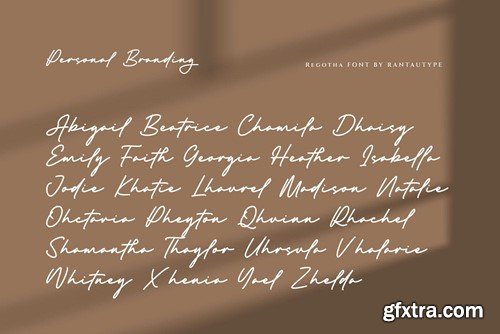 Personal Branding
Regotha FONT BY RANTAUTYPE
Abigail Beatrice Chamila Dhaisy
Emily Faith Georgia Heather Isabella
Jodie Khatie Lhaurel Madison Natalie
Ohctavia Pheyton Qhuinn Rhachel
Shamantha Thaylor Uhrsula Vhalarie
Whitney Xhenia Yael Zhelda
gfxtra.com